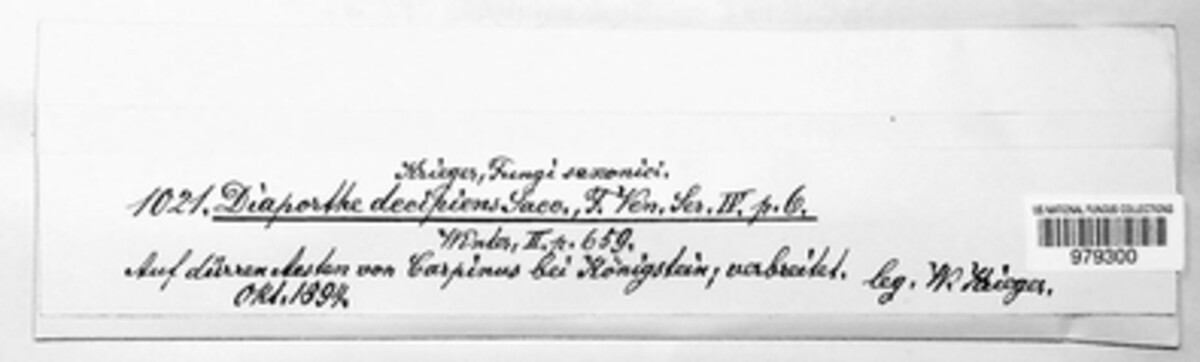 Krieger, Fungi saxonici.
1021. Diaporthe decipiens Sacc., F. Ven. Ser. IV. p. 6.
Winter, II. p. 659.
Auf dürren Aesten von Carpinus bei Königstein, verbreitet.
Okt. 1894. leg. W. Krieger.
US NATIONAL FUNGUS COLLECTIONS
979300